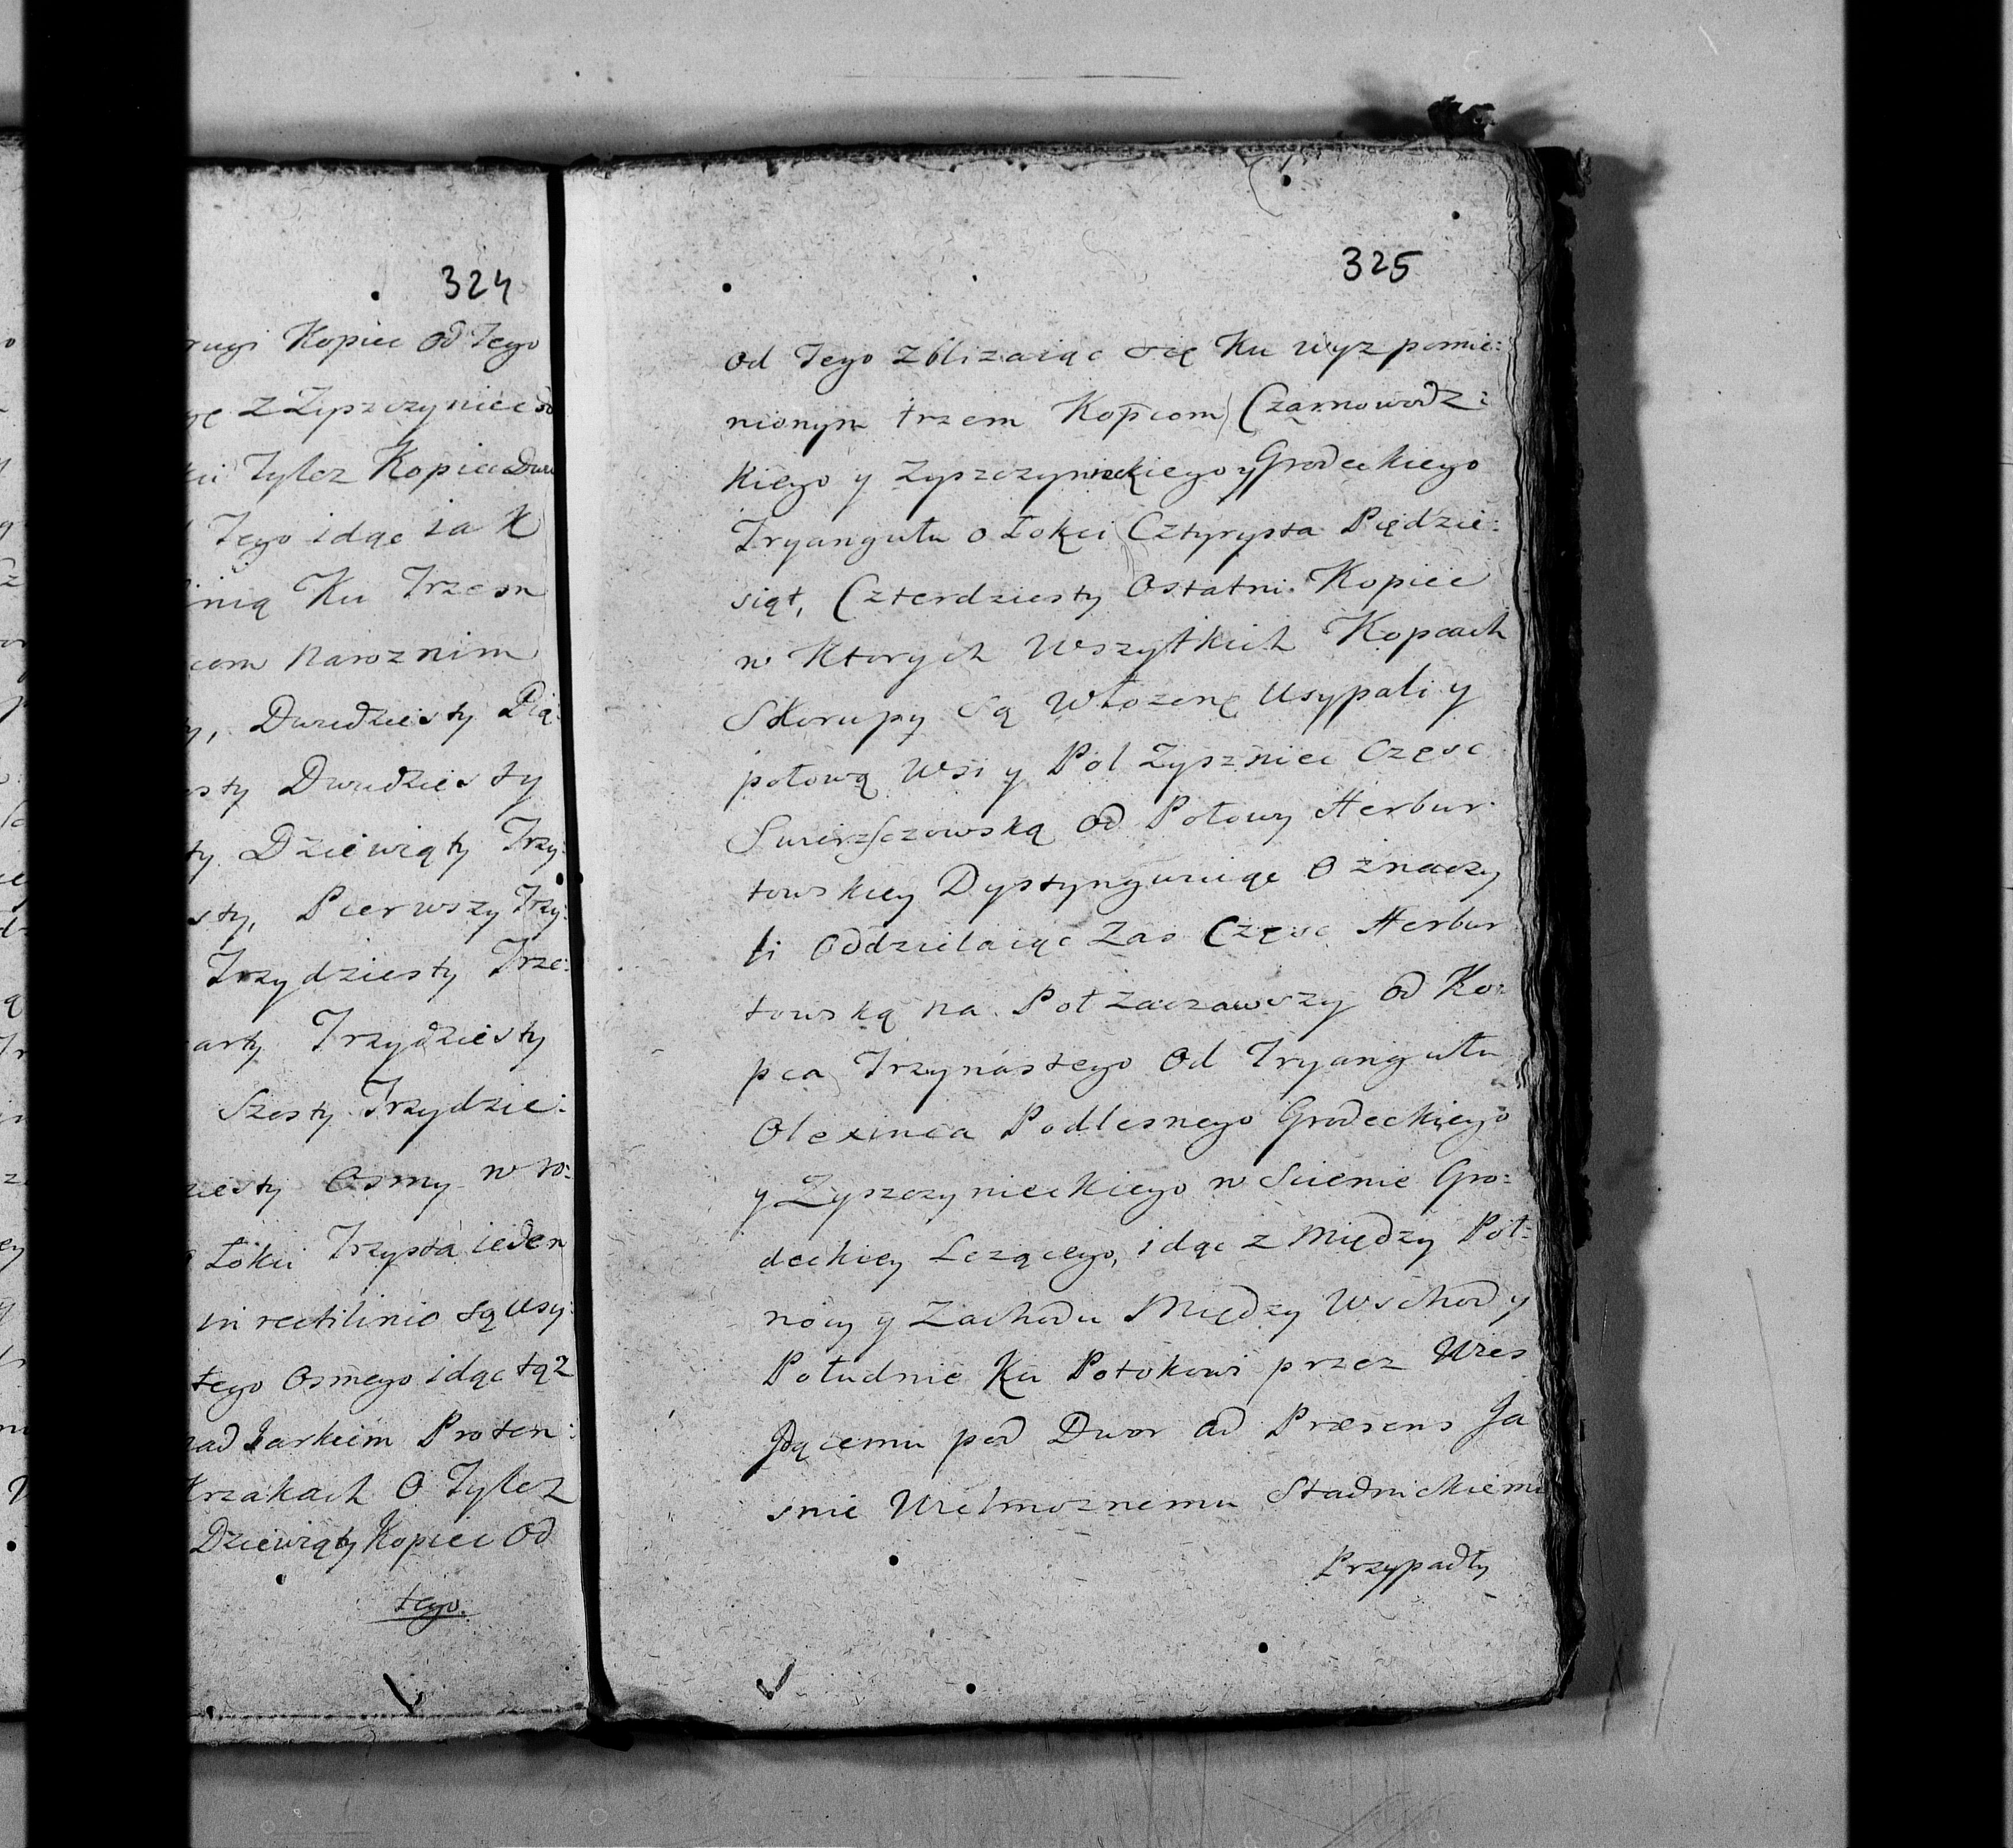 324
rugi Kopiec Od Tego
ę z Zyszczyniec do
ki Tylez Kopiec Dwu
Tego idąc ta K
inią Ku Trzem
com Naroznim
y, Dwudziesty Pią:
sty Dwudziesty
ty Dziewiąty Trzy:
sty, Pierwszy Trzy:
Trzydziesty Trze:
arty Trzydziesty
Szosty Trzydzie:
iesty Osmy w ro:
Łokci Trzysta ieden
in rectilinio są usy:
tego Osmego idąc tąz
nad Jarkiem Proten:
Krzakach O Tylez
Dziewiąty Kopiec Od
tego.
325
od Tego zblizaiąc się Ku wyz pomie:
nionym trzem Kopcom Czarnowodz:
kiego y Zyszczynieckiego y Grodeckiego
Tryangułu o Łokci Cztyrysta Piędzie:
siąt, Czterdziesty Ostatni Kopiec
w Ktorych Wszytkich Kopcach
Skorupy są Włozone Usypali y
połową Wsi y Pol Zyszniec Częsc
Swierzsczowską od Połowy Herbur:
towskiey Dystynguuiąc Oznaczy
li Oddzielaiąc Zas Częsc Herbur
towską na Poł zacząwszy od Ko:
pca Trzynastego Od Tryangułu
Olexinca Podlesnego Grodeckiego
y Zyszczynieckiego w Scienie Gro:
deckiey Lezącego, idąc z Między Poł:
nocy y Zachodu Między Wschod y
Południe Ku Potokowi przez Wies
Idącemu pod Dwor ad Præsens Ja
snie Wielmoznemu Stadnickiemu
Przypadły